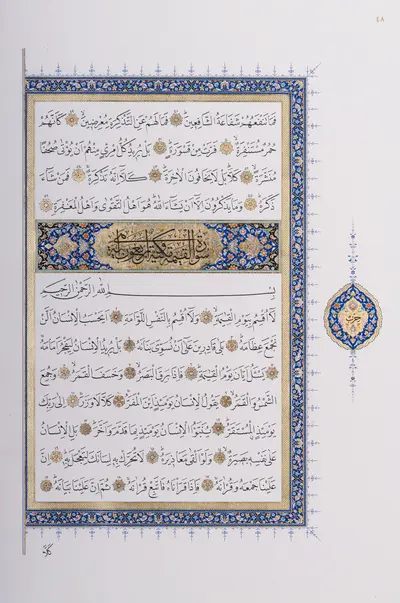 فَمَا تَنْفَعُهُمْ شَفَاعَةُ الشَّافِعِينَ فَمَا لَهُمْ عَنِ التَّذْكِرَةِ مُعْرِضِينَ كَأَنَّهُمْ
حُمُرٌ مُسْتَنْفِرَةٌ فَرَّتْ مِنْ قَسْوَرَةٍ بَلْ يُرِيدُ كُلُّ امْرِئٍ مِنْهُمْ أَنْ يُؤْتَى صُحُفًا
مُنَشَّرَةً كَلَّا بَلْ لَا يَخَافُونَ الْآخِرَةَ كَلَّا إِنَّهُ تَذْكِرَةٌ فَمَنْ شَاءَ
ذَكَرَهُ وَمَا يَذْكُرُونَ إِلَّا أَنْ يَشَاءَ اللَّهُ هُوَ أَهْلُ التَّقْوَى وَأَهْلُ الْمَغْفِرَةِ
سورة القيمة مكية اربعون
بِسْمِ اللَّهِ الرَّحْمَنِ الرَّحِيمِ
لَا أُقْسِمُ بِيَوْمِ الْقِيَمَةِ وَلَا أُقْسِمُ بِالنَّفْسِ اللَّوَّامَةِ أَيَحْسَبُ الْإِنْسَانُ أَلَّنْ
نَجْمَعَ عِظَامَهُ بَلَى قَادِرِينَ عَلَى أَنْ نُسَوِّيَ بَنَانَهُ بَلْ يُرِيدُ الْإِنْسَانُ لِيَفْجُرَ أَمَامَهُ
يَسْئَلُ أَيَّانَ يَوْمُ الْقِيَمَةِ فَإِذَا بَرِقَ الْبَصَرُ وَخَسَفَ الْقَمَرُ وَجُمِعَ
الشَّمْسُ وَالْقَمَرُ يَقُولُ الْإِنْسَانُ يَوْمَئِذٍ أَيْنَ الْمَفَرُّ كَلَّا لَا وَزَرَ إِلَى رَبِّكَ
يَوْمَئِذٍ الْمُسْتَقَرُّ يُنَبَّؤُا الْإِنْسَانُ يَوْمَئِذٍ بِمَا قَدَّمَ وَأَخَّرَ بَلِ الْإِنْسَانُ
عَلَى نَفْسِهِ بَصِيرَةٌ وَلَوْ أَلْقَى مَعَاذِيرَهُ لَا تُحَرِّكْ بِهِ لِسَانَكَ لِتَعْجَلَ بِهِ إِنَّ
عَلَيْنَا جَمْعَهُ وَقُرْانَهُ فَإِذَا قَرَأْنَاهُ فَاتَّبِعْ قُرْانَهُ ثُمَّ إِنَّ عَلَيْنَا بَيَانَهُ
حزب
كَلَّا